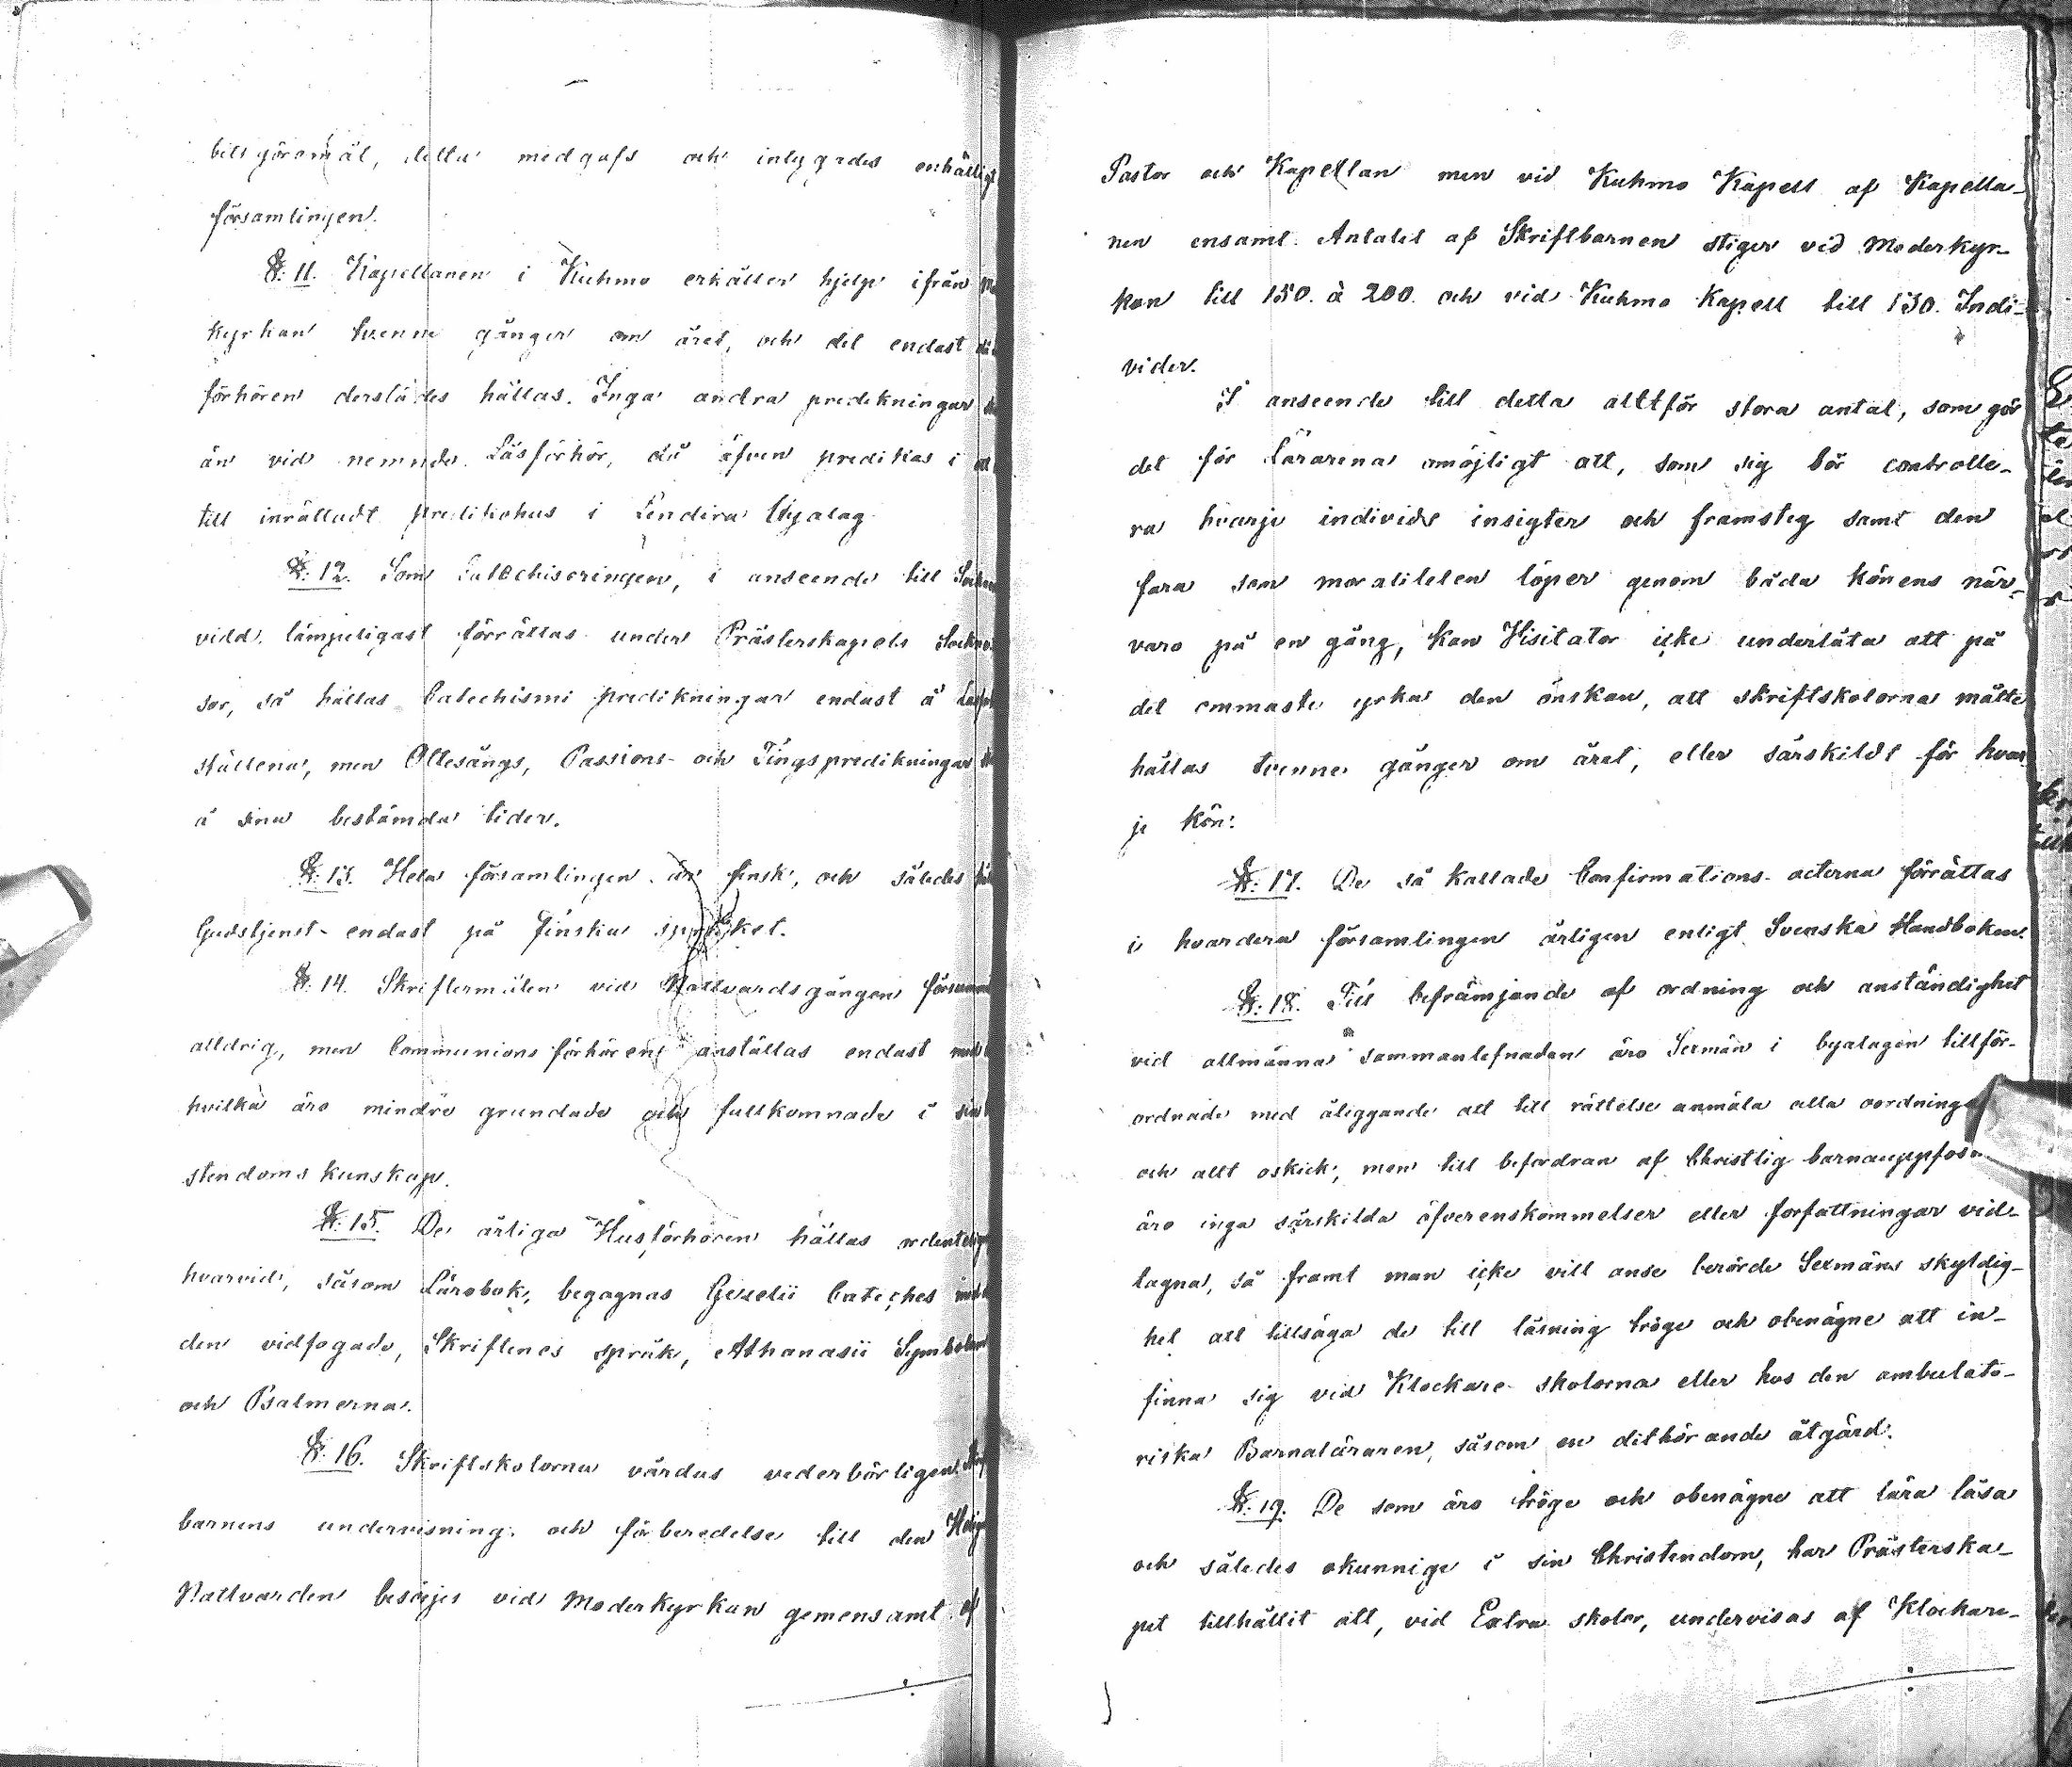 bets göromål, detta medgafs och inlygades enhälligt
församlingen.
§: 11. Kapellanen i Kuhmo erhåller hjelp ifrån
kyrkan tvenne gånger om året, och det endast då
förhören derstädes hållas. Inga andra predikningar
än vid nemnde Läsförhör, då äfven predikas i
till inrättadt predikohus i Lendira byalag
§: 12. Som Catechiseringen, i anseende till
vidd, lämpeligast förrättas under Prästerskapets
sor, så hållas Catechismi predikningar endast å
ställena, men Ottesångs, Passions- och Tingspredikningar
å sina bestämda tider.
§: 13. Hela församlingen är finsk, och således
Gudstjenst endast på finska språket.
§: 14. Skriftermålen vid Nattvardsgången
alldrig, men Communions förhören anställas endast med
hvilka äro mindre grundade och fullkomnade i
stendoms kunskap.
§: 15. De årliga Husförhören hållas ordentligen
hvarvid, såsom Lärobok, begagnas Gezelii Cateches
den vidfogade, Skriftenes språk, Athanasii Symbolum
och Psalmerna.
§: 16. Skriftskolorna vårdas vederbörligen.
barnens undervisning och förberedelse till den Helige
Nattvarden besörjes vid Moderkyrkan gemensamt af
Pastor och Kapellan men vid Kuhmo Kapell af Kapella-
nen ensamt. Antalet af Skriftbarnen stiger vid Moderkyr-
kan till 150. à 200. och vid Kuhmo Kapell till 130. Indi-
vider.
I anseende till detta alltför stora antal, som gör
det för Lärarena omöjligt att, som sig bör controlle-
ra hvarje individs insigter och framsteg samt den
fara som moraliteten löper genom båda könens när-
varo på en gång, kan Visitator icke underlåta att på
det ömmaste yrka den önskan, att skriftskolorna måtte
hållas tvenne gånger om året, eller särskildt för hvar-
je kön.
§: 17. De så kallade Confirmations-acterna förrättas
i hvardera församlingen årligen enligt Svenska Handboken.
§: 18. Till befrämjande af ordning och anständighet
vid allmänna sammanlefnaden äro Sexmän i byalagen tillför-
ordnade med åliggande att till rättelse anmäla alla oordningar
och allt oskick; men till befordran af Christlig barnauppfostr
äro inga särskilda öfverenskommelser eller författningar vid-
tagna, så framt man icke vill anse berörde Sexmäns skyldig-
het att tillsäga de till läsning tröge och obenägne att in-
finna sig vid Klockare-skolorna eller hos den ambulato-
riska Barnaläraren, såsom en dithörande åtgärd.
§: 19. De som äro tröge och obenägne att lära läsa
och således okunnige i sin Christendom, har Prästerska-
pet tillhållit att, vid Extra skolor, undervisas af Klockare-